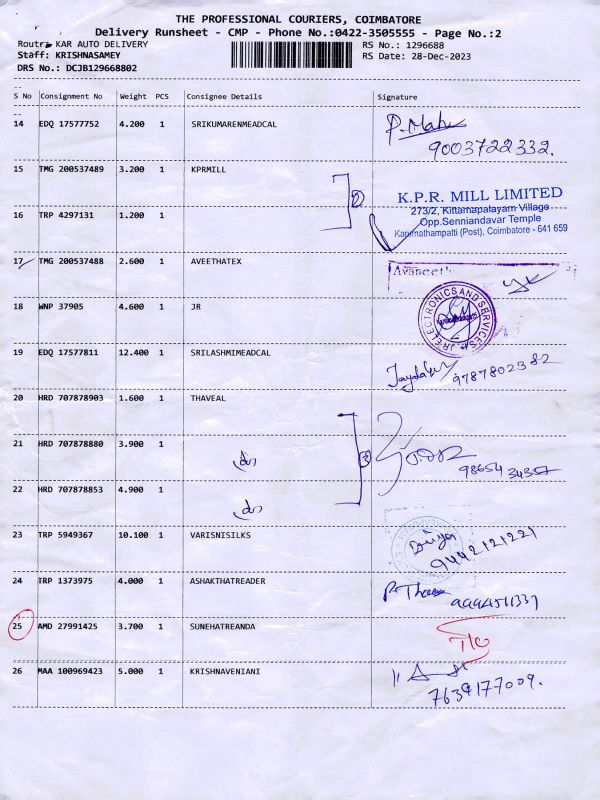 THE PROFESSIONAL COURIERS, COIMBATORE
Delivery Runsheet - CMP - Phone No.:0422-3505555 - Page No.:2
Route: KAR AUTO DELIVERY RS No.: 1296688
Staff: KRISHNASAMEY RS Date: 28-Dec-2023
DRS No.: DCJB129668802
S No Consignment No Weight PCS Consignee Details Signature
14 EDQ 17577752 4.200 1 SRIKUMARENMEADCAL
9003722332.
15 TMG 200537489 3.200 1 KPRMILL
K.P.R. MILL LIMITED
273/2, Kittampalayam Village
Opp.Senniandavar Temple
Karumathampatti (Post), Coimbatore - 641 659
16 TRP 4297131 1.200 1
17 TMG 200537488 2.600 1 AVEETHATEX
Avaneeth
18 WNP 37905 4.600 1 JR
JR ELECTRONICS AND SERVICES
19 EDQ 17577811 12.400 1 SRILASHMIMEADCAL
9787802382
20 HRD 707878903 1.600 1 THAVEAL
21 HRD 707878880 3.900 1
98654 34357
22 HRD 707878853 4.900 1
23 TRP 5949367 10.100 1 VARISNISILKS
9442121221
24 TRP 1373975 4.000 1 ASHAKTHATREADER
25 AMD 27991425 3.700 1 SUNEHATREANDA
26 MAA 100969423 5.000 1 KRISHNAVENIANI
7639177009.